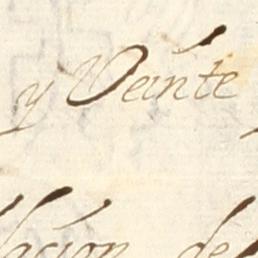 y Veinte
lacion de